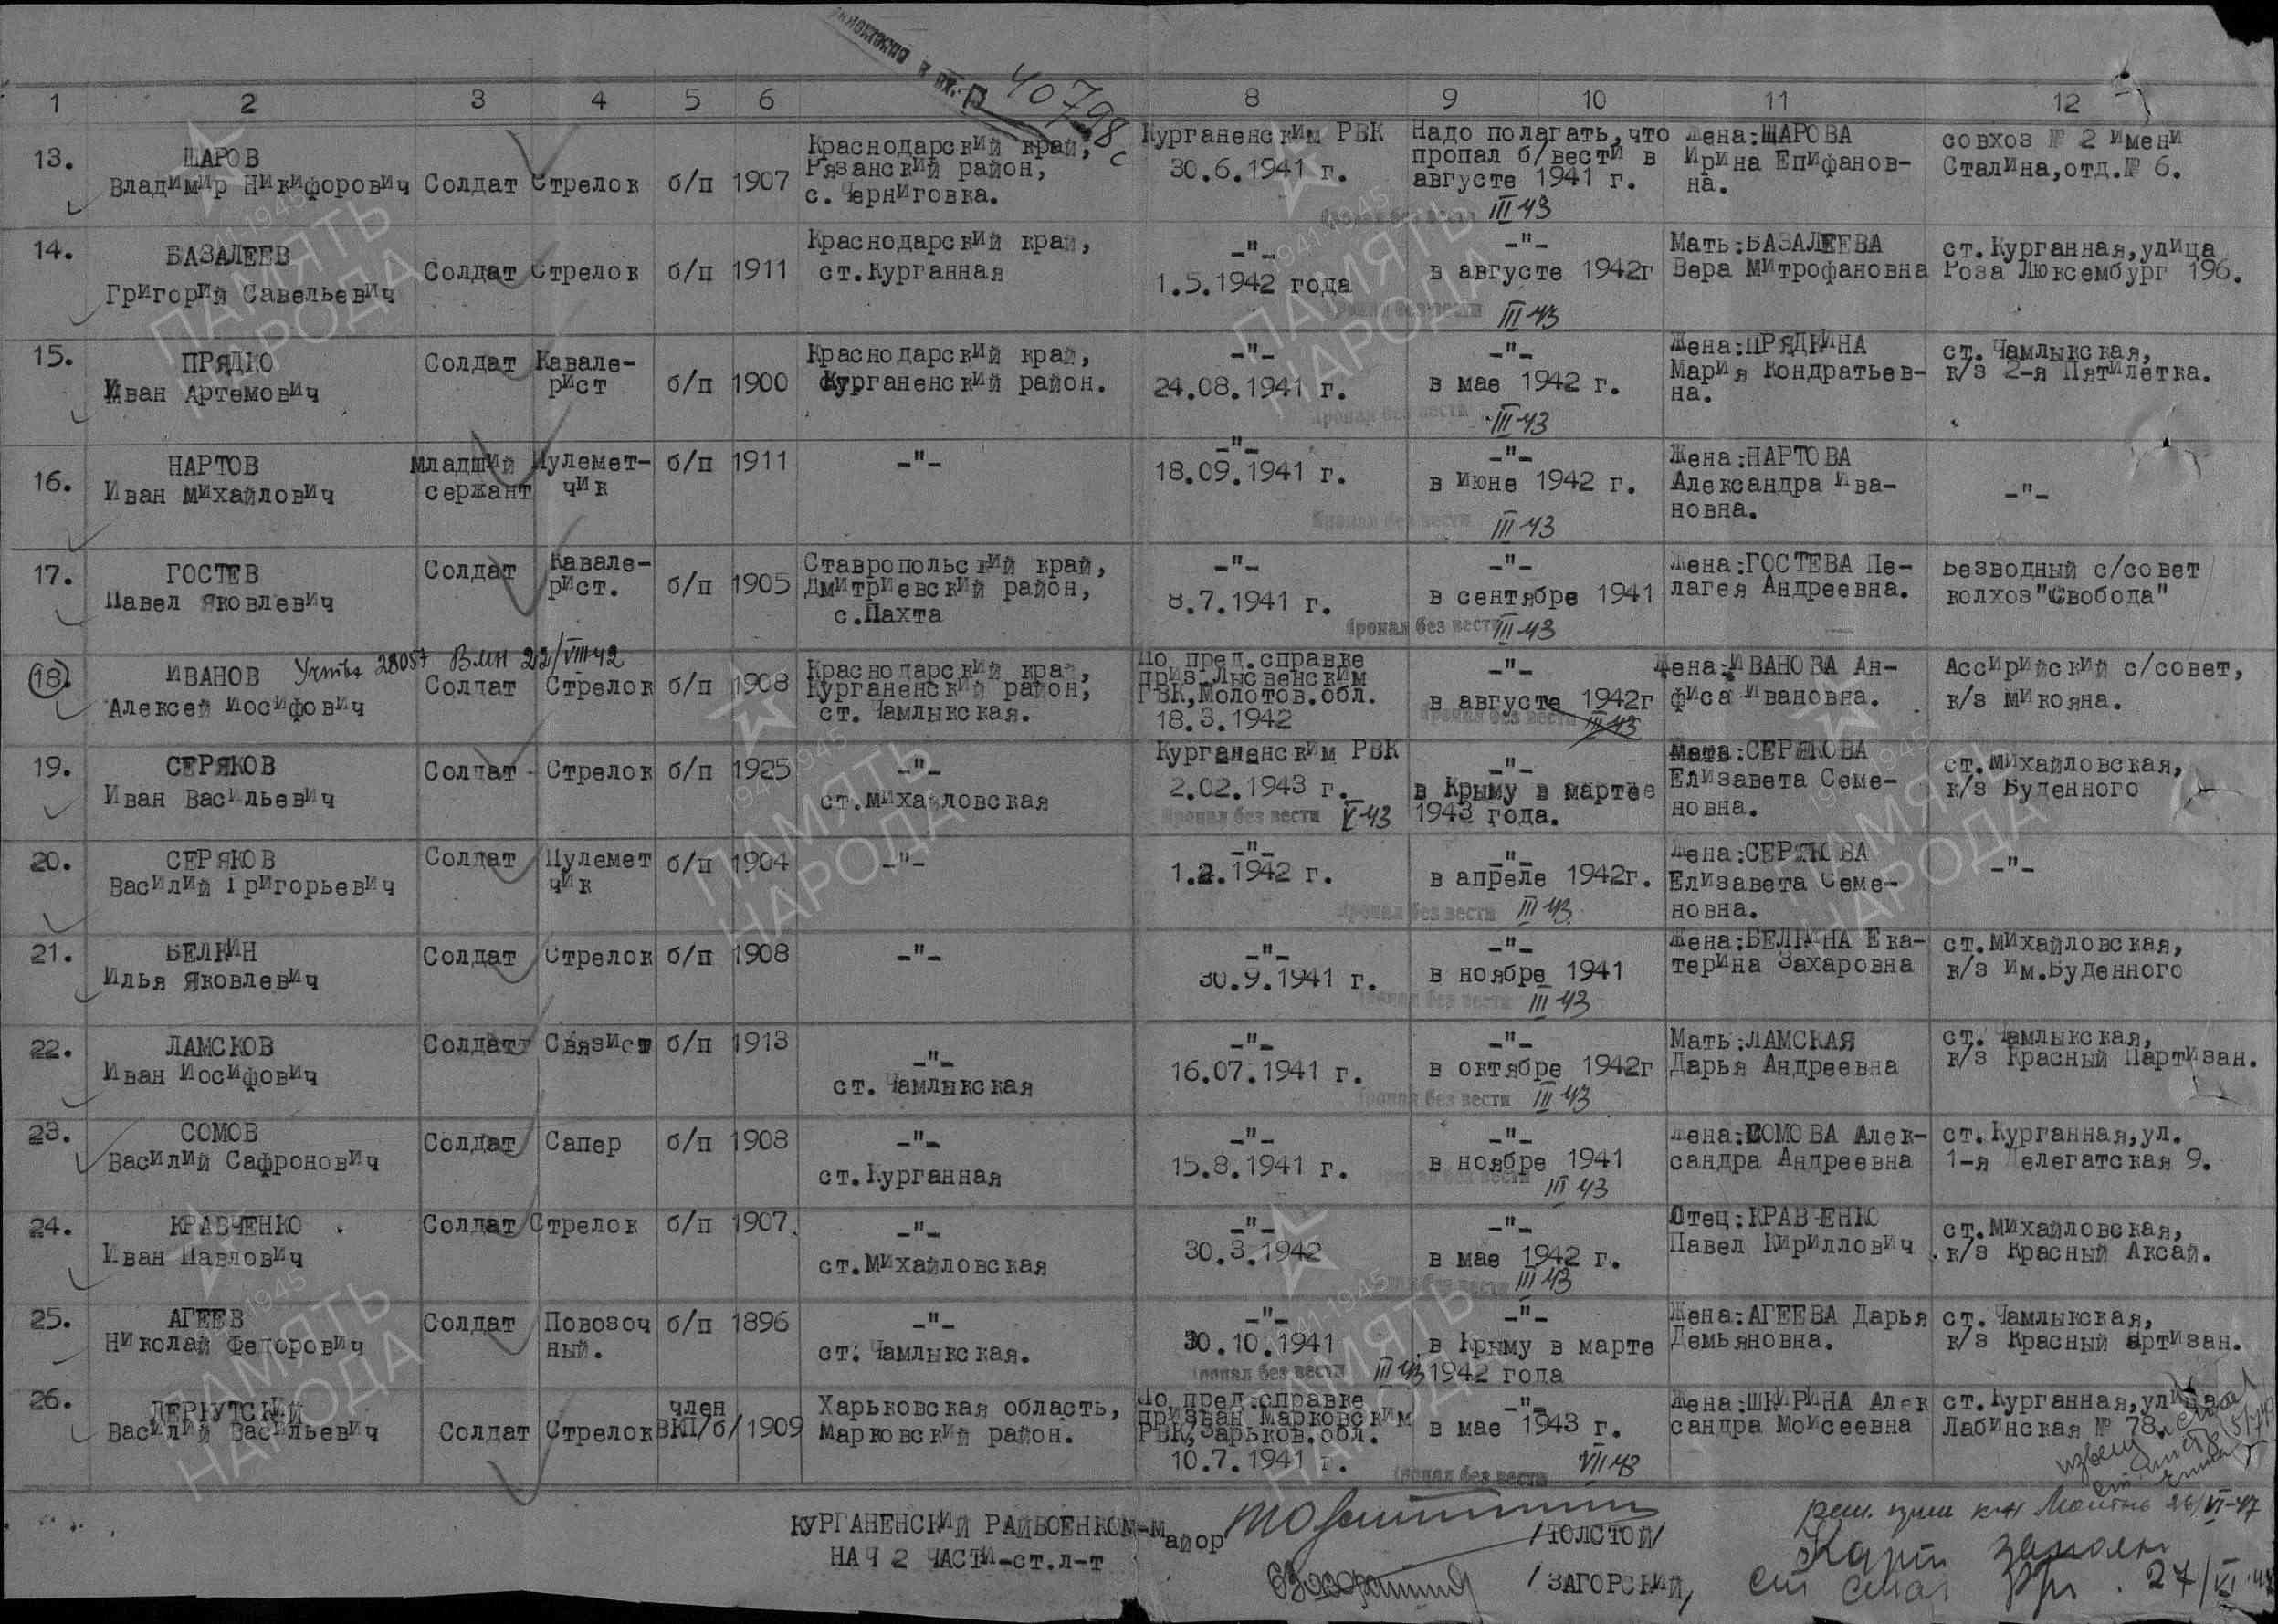 40798с
1 2 3 4 5 6 8 9 10 11 12
13. ШАРОВ
Владимир Никифорович
Солдат Стрелок б/п 1907
Краснодарский край,
Рязанский район,
с.Черниговка.
Курганенским РВК
30.6.1941 г.
Надо полагать, что
пропал б/вести в
августе 1941 г.
Пропал без вести III 43
Жена:ШАРОВА
Ирина Епифанов-
на.
совхоз № 2 имени
Сталина,отд.№ 6.
14. БАЗАЛЕЕВ
Григорий Савельевич
Солдат Стрелок б/п 1911
Краснодарский край,
ст.Курганная
-"-
1.5.1942 года
-"-
в августе 1942г
Пропал без вести III 43
Мать:БАЗАЛЕЕВА
Вера Митрофановна
ст.Курганная,улица
Роза Люксембург 196.
15. ПРЯДКО
Иван Артемович
Солдат Кавале-
рист
б/п 1900
Краснодарский край,
Курганенский район.
-"-
24.08.1941 г.
-"-
в мае 1942 г.
Пропал без вести III 43
Жена:ПРЯДКИНА
Мария Кондратьев-
на.
ст. Чамлыкская,
к/з 2-я Пятилетка.
16. НАРТОВ
Иван Михайлович
младший
сержант
Пулемет-
чик
б/п 1911
-"-
-"-
18.09.1941 г.
-"-
в июне 1942 г.
Пропал без вести III 43
Жена:НАРТОВА
Александра Ива-
новна.
-"-
17. ГОСТЕВ
Павел Яковлевич
Солдат Кавале-
рист.
б/п 1905
Ставропольский край,
Дмитриевский район,
с.Пахта
-"-
8.7.1941 г.
-"-
в сентябре 1941
Пропал без вести III 43
Жена:ГОСТЕВА Пе-
лагея Андреевна.
Безводный с/совет
колхоз"Свобода"
18. ИВАНОВ 28057 ВМН 22/VIII 42
Алексей Иосифович
Солдат Стрелок б/п 1908
Краснодарский край,
Курганенский район,
ст. Чамлыкская.
По пред.справке
приз.Лысвенским
РВК,Молотов.обл.
18.3.1942
-"-
в августе 1942г
Пропал без вести III 43
Жена:ИВАНОВА Ан-
фиса Ивановна.
Ассирийский с/совет,
к/з Микояна.
19. СЕРЯКОВ
Иван Васильевич
Солдат - Стрелок б/п 1925
-"-
ст.Михайловская
Курганенским РВК
2.02.1943 г.
Пропал без вести V 43
-"-
в Крыму в мартее
1943 года.
Мать:СЕРЯКОВА
Елизавета Семе-
новна.
ст.Михайловская,
к/з Буденного
20. СЕРЯКОВ
Василий Григорьевич
Солдат Пулемет
чик
б/п 1904
-"-
-"-
1.2.1942 г.
-"-
в апреле 1942г.
Пропал без вести III 43
Жена:СЕРЯКОВА
Елизавета Семе-
новна.
-"-
21. БЕЛКИН
Илья Яковлевич
Солдат Стрелок б/п 1908
-"-
-"-
30.9.1941 г.
-"-
в ноябре 1941
Пропал без вести III 43
Жена:БЕЛКИНА Ека-
терина Захаровна
ст.Михайловская,
к/з им.Буденного
22. ЛАМСКОВ
Иван Иосифович
Солдат Связист б/п 1913
-"-
ст. Чамлыкская
-"-
16.07.1941 г.
-"-
в октябре 1942г
Пропал без вести III 43
Мать:ЛАМСКАЯ
Дарья Андреевна
ст. Чамлыкская,
к/з Красный Партизан.
23. СОМОВ
Василий Сафронович
Солдат Сапер б/п 1908
-"-
ст.Курганная
-"-
15.8.1941 г.
-"-
в ноябре 1941
Пропал без вести III 43
Жена:СОМОВА Алек-
сандра Андреевна
ст.Курганная,ул.
1-я Делегатская 9.
24. КРАВЧЕНКО
Иван Павлович
Солдат Стрелок б/п 1907.
-"-
ст.Михайловская
-"-
30.3.1942
-"-
в мае 1942 г.
Пропал без вести III 43
Отец:КРАВЧЕНКО
Павел Кириллович
ст.Михайловская,
к/з Красный Аксай.
25. АГЕЕВ
Николай Федорович
Солдат Повозоч
ный.
б/п 1896
-"-
ст. Чамлыкская.
-"-
30.10.1941
Пропал без вести III 43
-"-
в Крыму в марте
1942 года
Жена:АГЕЕВА Дарья
Демьяновна.
ст. Чамлыкская,
к/з Красный артизан.
26. ДЕРКУТСКИЙ
Василий Васильевич
Солдат Стрелок член
ВКП/б/ 1909
Харьковская область,
Марковский район.
По пред.справке
призван Марковским
РВК,Харьков.обл.
10.7.1941 г.
-"-
в мае 1943 г.
Пропал без вести VII 43
Жена:ШКИРИНА Алек
сандра Моисеевна
ст.Курганная,улица
Лабинская № 78.
КУРГАНЕНСКИЙ РАЙВОЕНКОМ-майор /ТОЛСТОЙ/
НАЧ 2 ЧАСТИ-ст.л-т /ЗАГОРСКИЙ/
26/VI-47
27/VI
1941-1945
ПАМЯТЬ
НАРОДА